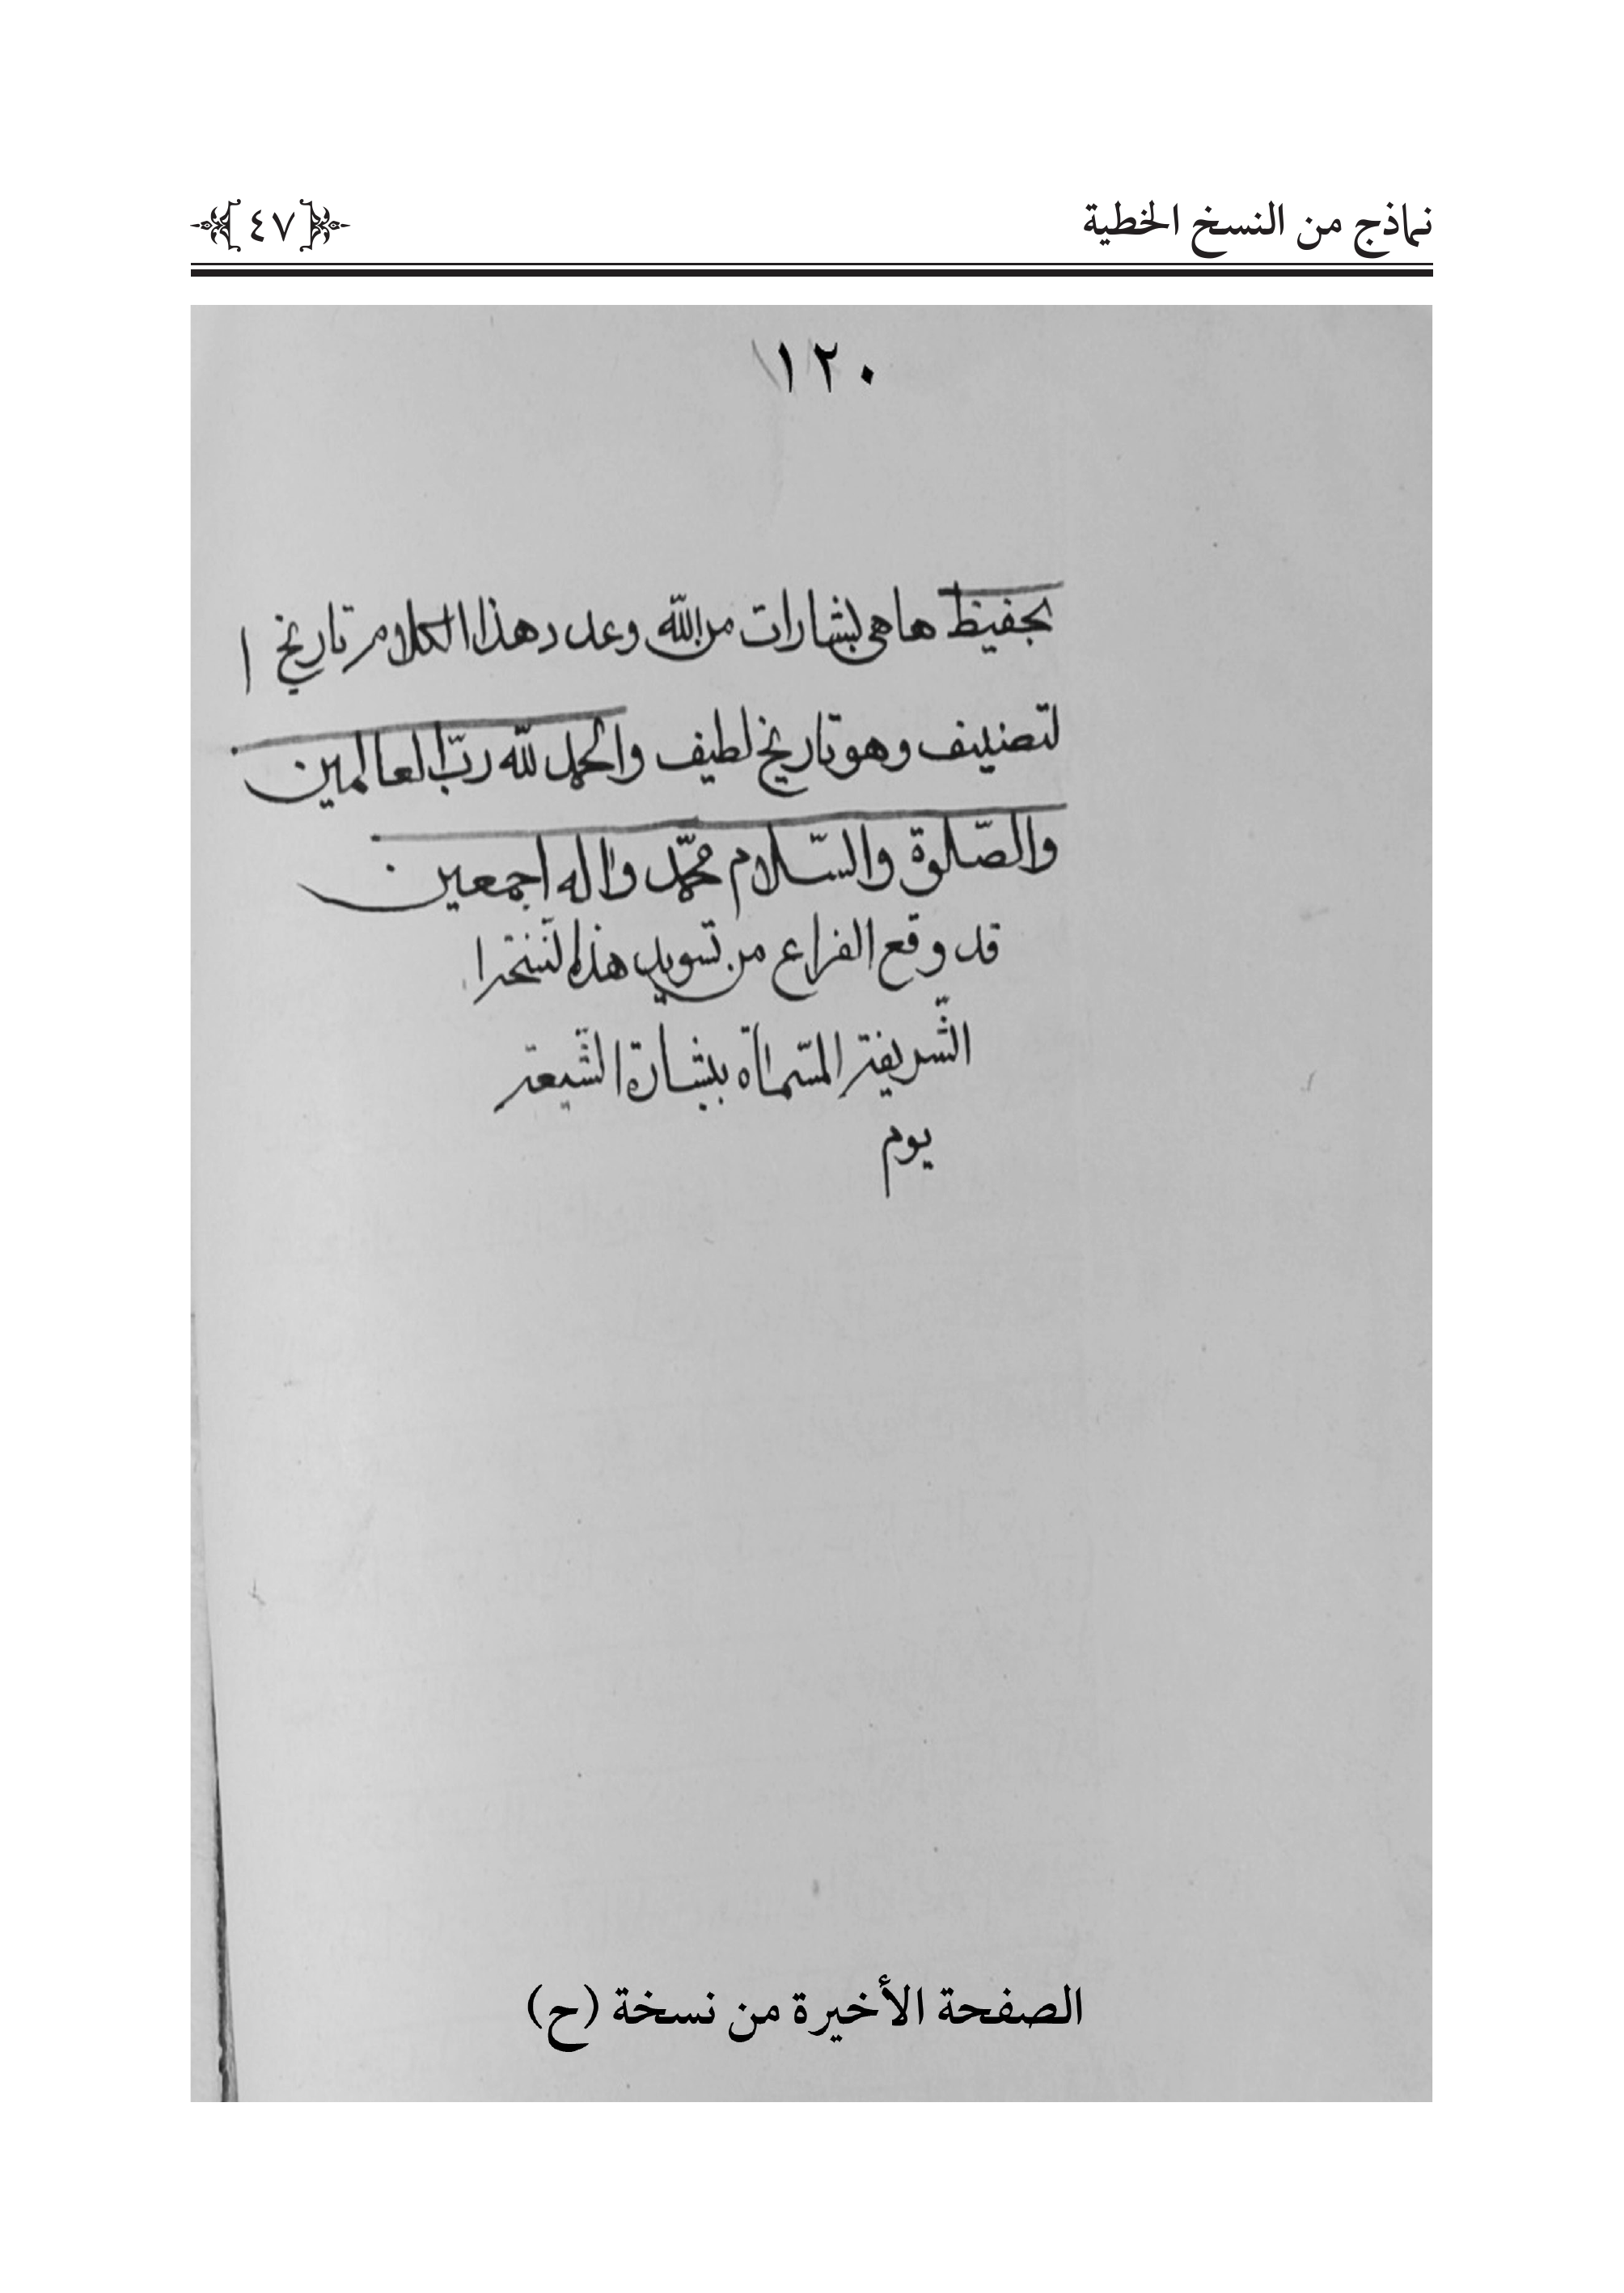 نماذج من النسخ الخطية
٤٧
١٢٠
بحفيظ هاهى بشارات من الله وعدد هذا الكلام تاريخ ا
لتصنيف وهو تاريخ لطيف والحمد لله ربّ العالمين
والصّلوة والسّلام محمّد واله اجمعين
قد وقع الفراغ من تسويد هذه
الشّريفة المسّماة ببشارة الشّيعة
يوم
الصفحة الأخيرة من نسخة (ح)